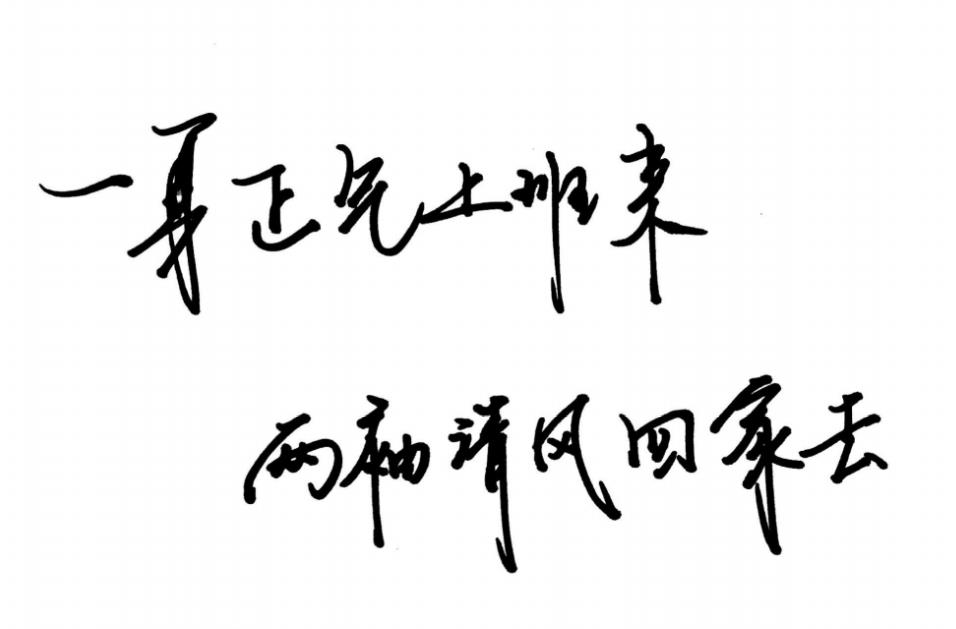 一身正气上班来
两袖清风回家去